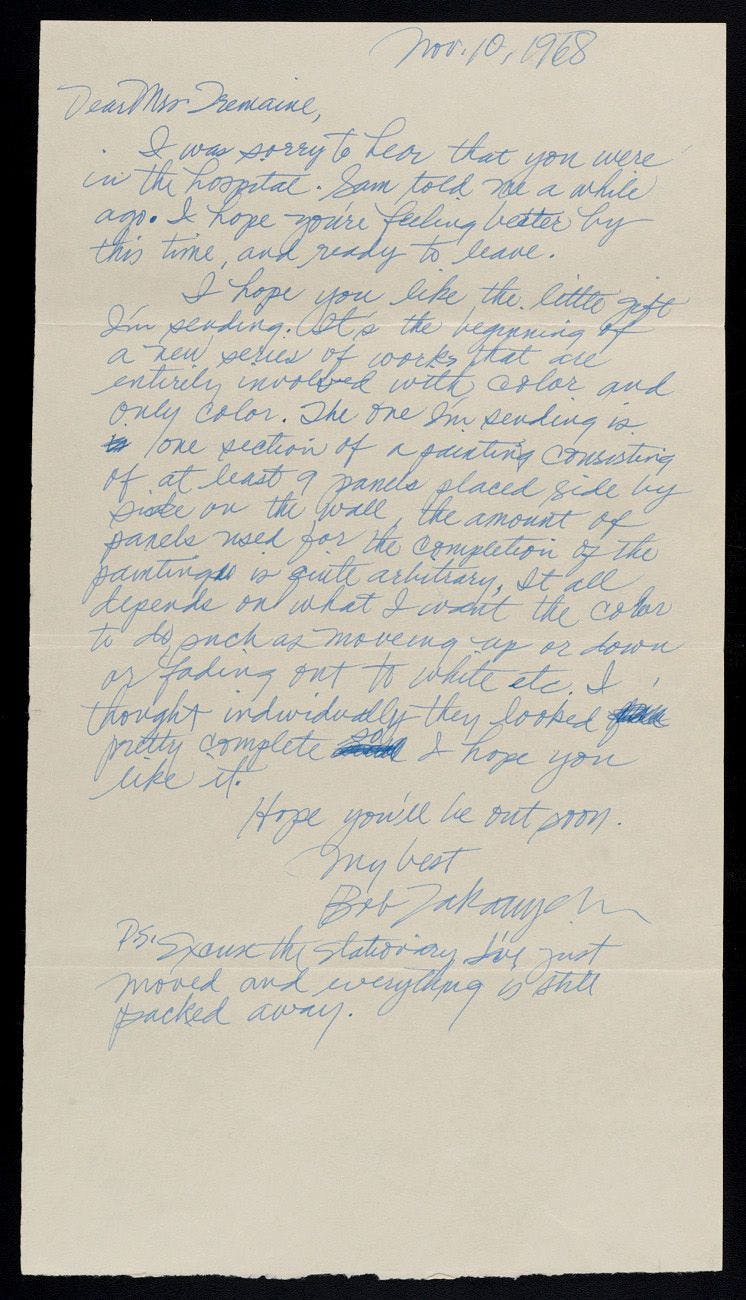 Nov. 10, 1968
Dear Mrs Tremaine,
I was sorry to hear that you were
in the hospital. Sam told me a while
ago. I hope you're feeling better by
this time, and ready to leave.
I hope you like the little gift
I'm sending. It's the beginning of
a new series of works that are
entirely involved with color and
only color. The one I'm sending is
one section of a painting consisting
of at least 9 panels placed side by
side on the wall, the amount of
panels used for the completion of the
painting is quite arbitrary, It all
depends on what I want the color
to do such as moveing up or down
or fading out to white etc. I
thought individually they looked
pretty complete so I hope you
like it.
Hope you'll be out soon.
My best
Bob
P.S. Excuse the stationary I've just
moved and everything is still
packed away.